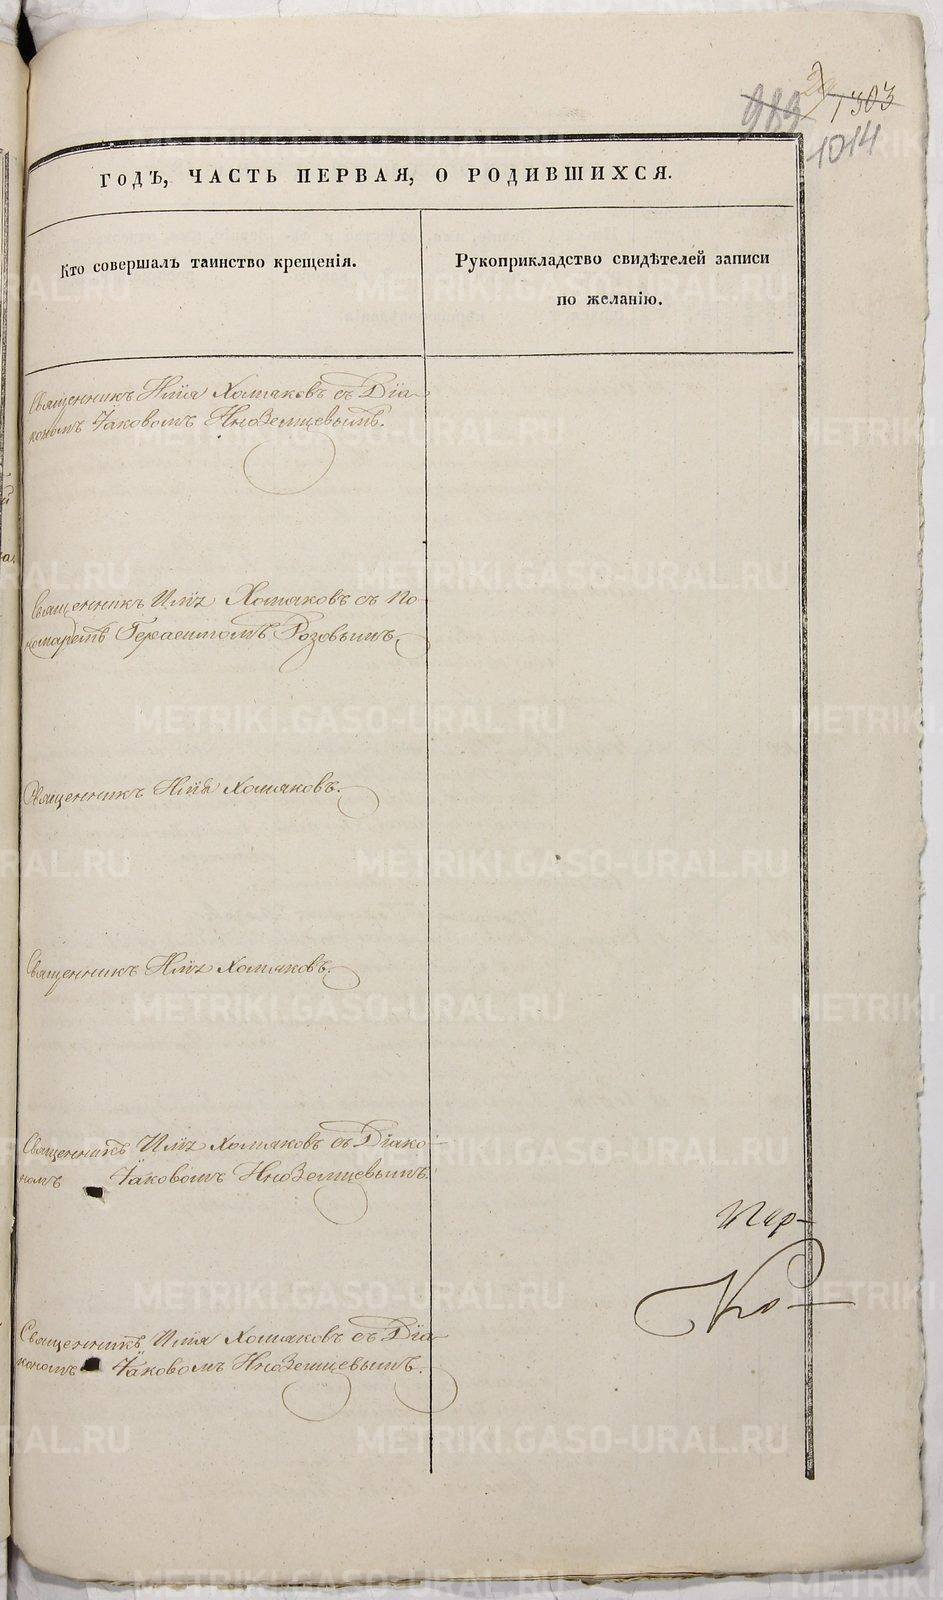 989 29 1303
1014
ГОДЪ, ЧАСТЬ ПЕРВАЯ, О РОДИВШИХСЯ.
Кто совершалъ таинство крещенія.
Рукоприкладство свидѣтелей записи
по желанію.
Священникъ Илїа Хомяковъ съ Дїа-
кономъ Іаковомъ Иноземцевымъ.
Священникъ Илїа Хомяковъ съ По-
номаремъ Герасимомъ Розовымъ.
Священникъ Илїа Хомяковъ.
Священникъ Илїа Хомяковъ.
Священникъ Илїа Хомяковъ съ Дїако-
номъ Іаковомъ Иноземцевымъ.
Священникъ Илїа Хомяковъ съ Дїа-
кономъ Іаковомъ Иноземцевымъ.
METRIKI.GASO-URAL.RU